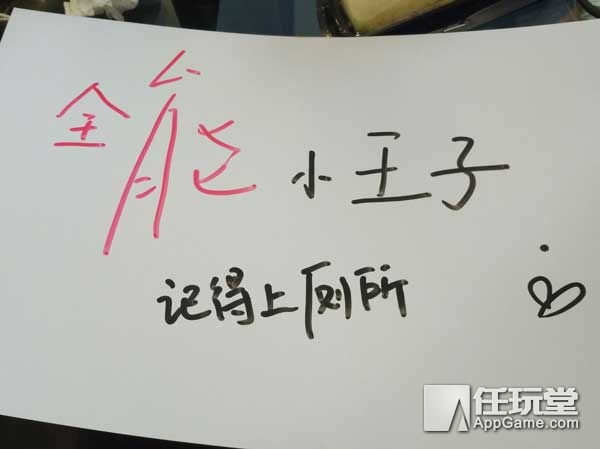 全能小王子
记得上厕所
任玩堂
AppGame.com